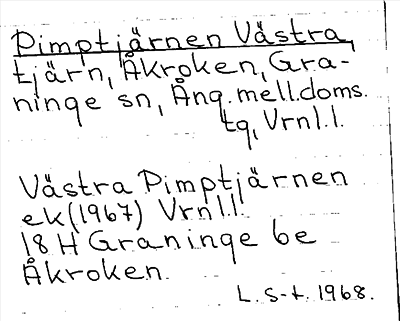 Pimptjärnen Västra,
tjärn, Åkroken, Gra-
ninge sn, Ång. mell. doms.
tg, Vrnl. l.
Västra Pimptjärnen
ek (1967) Vrnl. l.
18 H Graninge 6e
Åkroken.
L. S-t. 1968.